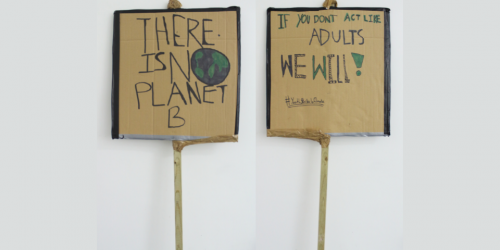 THERE
IS NO
PLANET
B
IF YOU DONT ACT LIKE
ADULTS
WE WILL!